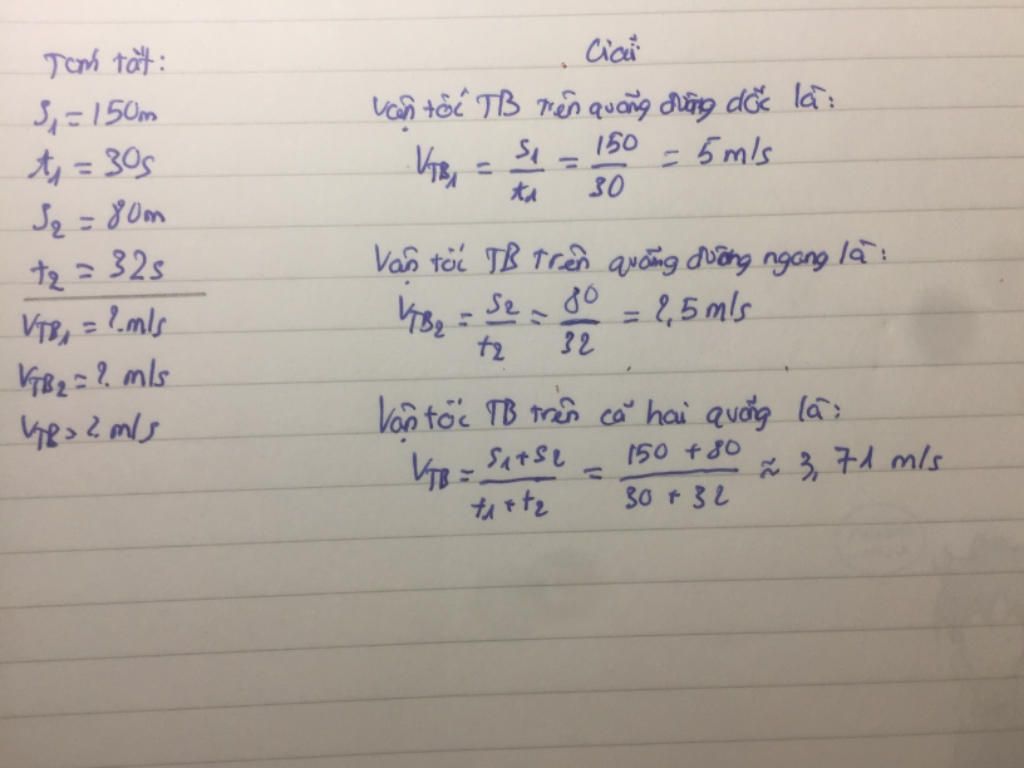 Tóm tắt:
S₁ = 150m
t₁ = 30s
S₂ = 80m
t₂ = 32s
V_TB₁ = ? m/s
V_TB₂ = ? m/s
V_TB = ? m/s
Giải
Vận tốc TB trên quãng đường dốc là:
V_TB₁ = S₁/t₁ = 150/30 = 5 m/s
Vận tốc TB trên quãng đường ngang là:
V_TB₂ = S₂/t₂ = 80/32 = 2,5 m/s
Vận tốc TB trên cả hai quãng là:
V_TB = (S₁+S₂)/(t₁+t₂) = (150+80)/(30+32) ≈ 3,71 m/s